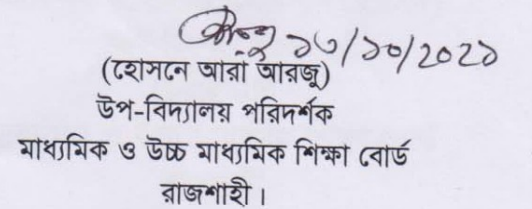 ১৩/১০/২০২১
(হোসনে আরা আরজু)
উপ-বিদ্যালয় পরিদর্শক
মাধ্যমিক ও উচ্চ মাধ্যমিক শিক্ষা বোর্ড
রাজশাহী।